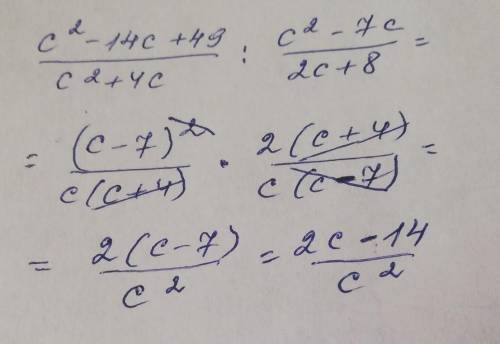 (c² - 14c + 49)/(c² + 4c) : (c² - 7c)/(2c + 8) =
= (c - 7)²/(c(c + 4)) · (2(c + 4))/(c(c - 7)) =
= (2(c - 7))/c² = (2c - 14)/c²